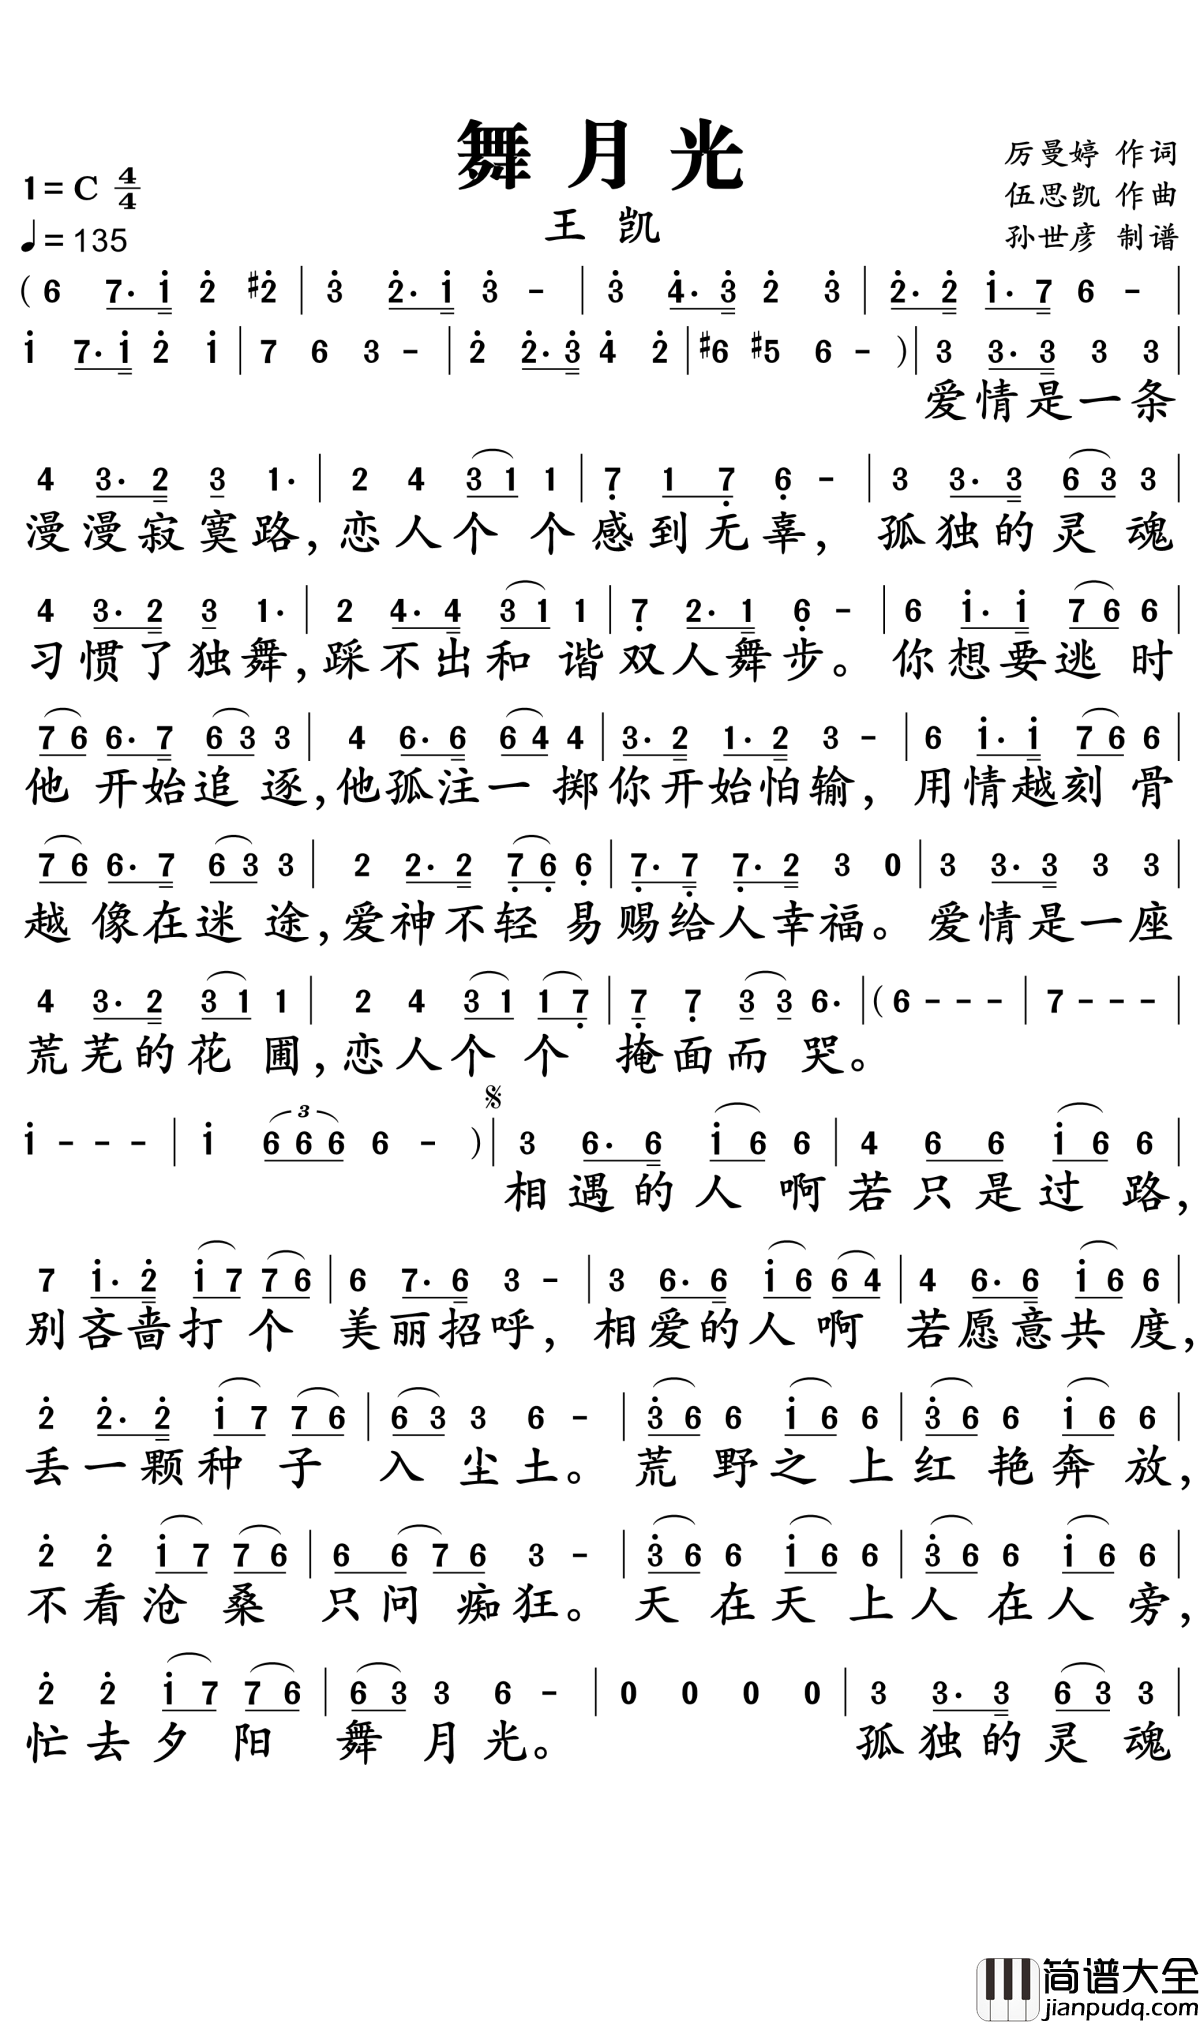 舞月光
厉曼婷 作词
1=C 4/4
伍思凯 作曲
王 凯
♩=135
孙世彦 制谱
( 6 7· i 2 #2 | 3 2· i 3 - | 3 4· 3 2 3 | 2· 2 i· 7 6 - |
i 7· i 2 i | 7 6 3 - | 2 2· 3 4 2 | #6 #5 6 - ) | 3 3· 3 3 3 |
爱情是一条
4 3· 2 3 1· | 2 4 3 1 1 | 7 1 7 6 - | 3 3· 3 6 3 3 |
漫漫寂寞路,恋人个 个感到无辜, 孤独的灵 魂
4 3· 2 3 1· | 2 4· 4 3 1 1 | 7 2· 1 6 - | 6 i· i 7 6 6 |
习惯了独舞,踩不出和 谐双人舞步。你想要逃 时
7 6 6· 7 6 3 3 | 4 6· 6 6 4 4 | 3· 2 1· 2 3 - | 6 i· i 7 6 6 |
他 开始追 逐,他孤注一 掷你开始怕输, 用情越刻 骨
7 6 6· 7 6 3 3 | 2 2· 2 7 6 6 | 7· 7 7· 2 3 0 | 3 3· 3 3 3 |
越 像在迷 途,爱神不轻 易赐给人幸福。爱情是一座
4 3· 2 3 1 1 | 2 4 3 1 1 7 | 7 7 3 3 6· | ( 6 - - - | 7 - - - |
荒芜的花 圃,恋人个 个 掩面而 哭。
𝄋
i - - - | i 3 6 6 6 6 - ) | 3 6· 6 i 6 6 | 4 6 6 i 6 6 |
相遇的人 啊若只是过 路,
7 i· 2 i 7 7 6 | 6 7· 6 3 - | 3 6· 6 i 6 6 4 | 4 6· 6 i 6 6 |
别吝啬打 个 美丽招呼, 相爱的人 啊 若愿意共 度,
2 2· 2 i 7 7 6 | 6 3 3 6 - | 3 6 6 i 6 6 | 3 6 6 i 6 6 |
丢一颗种 子 入 尘土。荒 野之 上红 艳奔 放,
2 2 i 7 7 6 | 6 6 7 6 3 - | 3 6 6 i 6 6 | 3 6 6 i 6 6 |
不看沧 桑 只问 痴狂。天 在天 上人 在人 旁,
2 2 i 7 7 6 | 6 3 3 6 - | 0 0 0 0 | 3 3· 3 6 3 3 |
忙去夕 阳 舞 月光。 孤独的灵 魂
简谱大全
jianpudq.com